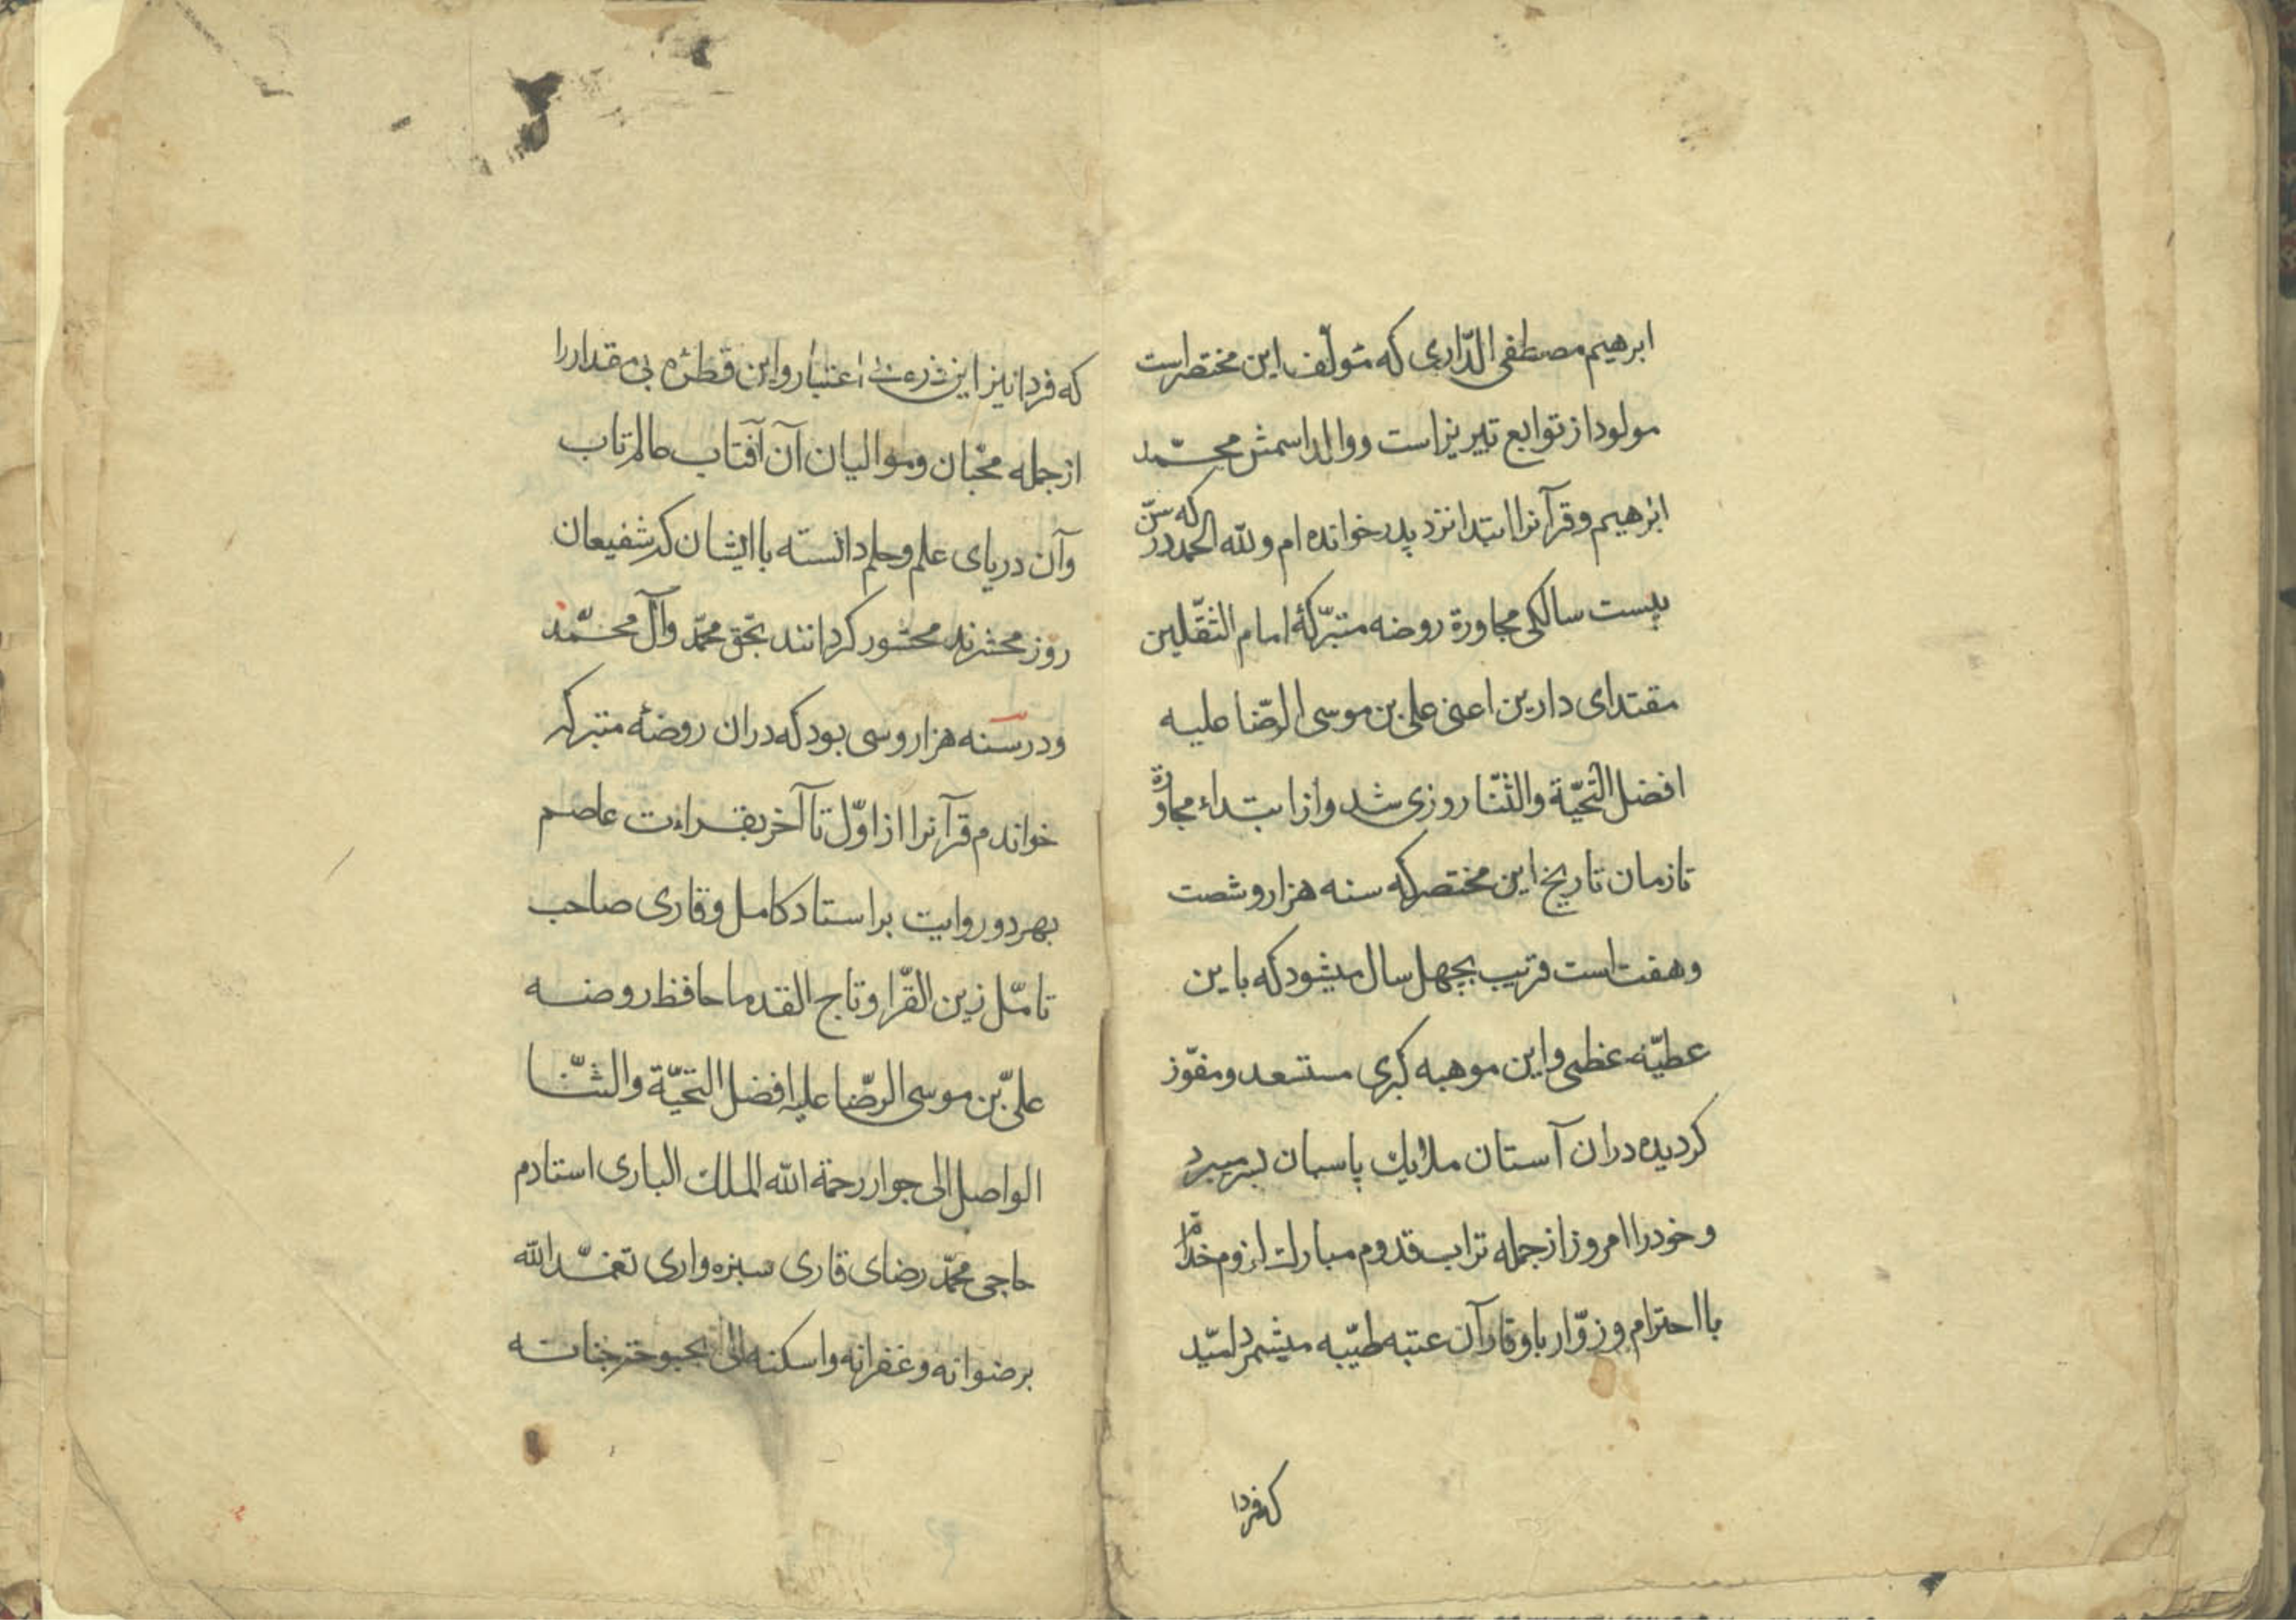 ابرهیم مصطفی الدّاری که مؤلّف این مختصر است
مولود از توابع تبریز است و والد اسمش محمّد
ابرهیم و قرآنرا ابتدا نزد پدر خوانده‌ام و لله الحمد که در سنّ
بیست سالکی مجاورة روضه متبرّکهٔ امام الثّقلین
مقتدای دارین اعنی علی بن موسی الرّضا علیه
افضل التّحیّة والثّنا روزی شد و از ابتداء مجاورة
تا زمان تاریخ این مختصر که سنه هزار و شصت
و هفت است قریب بچهل سال میشود که باین
عطیّه عظمی و این موهبه کبری مستسعد و مفوّز
کردیده در ان آستان ملایک پاسبان بسر میبرد
و خود را امروز از جمله تراب قدوم مبارک لزوم خدّام
با احترام و زوّار با وقار آن عتبه طیّبه میشمرد امید
که فردا
که فردا نیز این ذره بی اعتبار و این قطره بی مقدار را
از جمله محبّان و موالیان آن آفتاب عالم تاب
و آن دریای علم و حلم دانسته با ایشان که شفیعان
روز محشرند محشور کردانند بحق محمّد و آل محمّد
و در سنه هزار و سی بود که در ان روضه متبرکه
خواندم قرآنرا از اوّل تا آخر بقراءت عاصم
بهر دو روایت بر استاد کامل و قاری صاحب
تامّل زین القرّا و تاج القدما حافظ روضه
علیّ بن موسی الرّضا علیه افضل التّحیّة والثّنا
الواصل الی جوار رحمة الله الملک الباری استادم
حاجی محمّد رضای قاری سبزه‌واری تغمّد الله
برضوانه و غفرانه و اسکنه الی بحبوحة جنانه